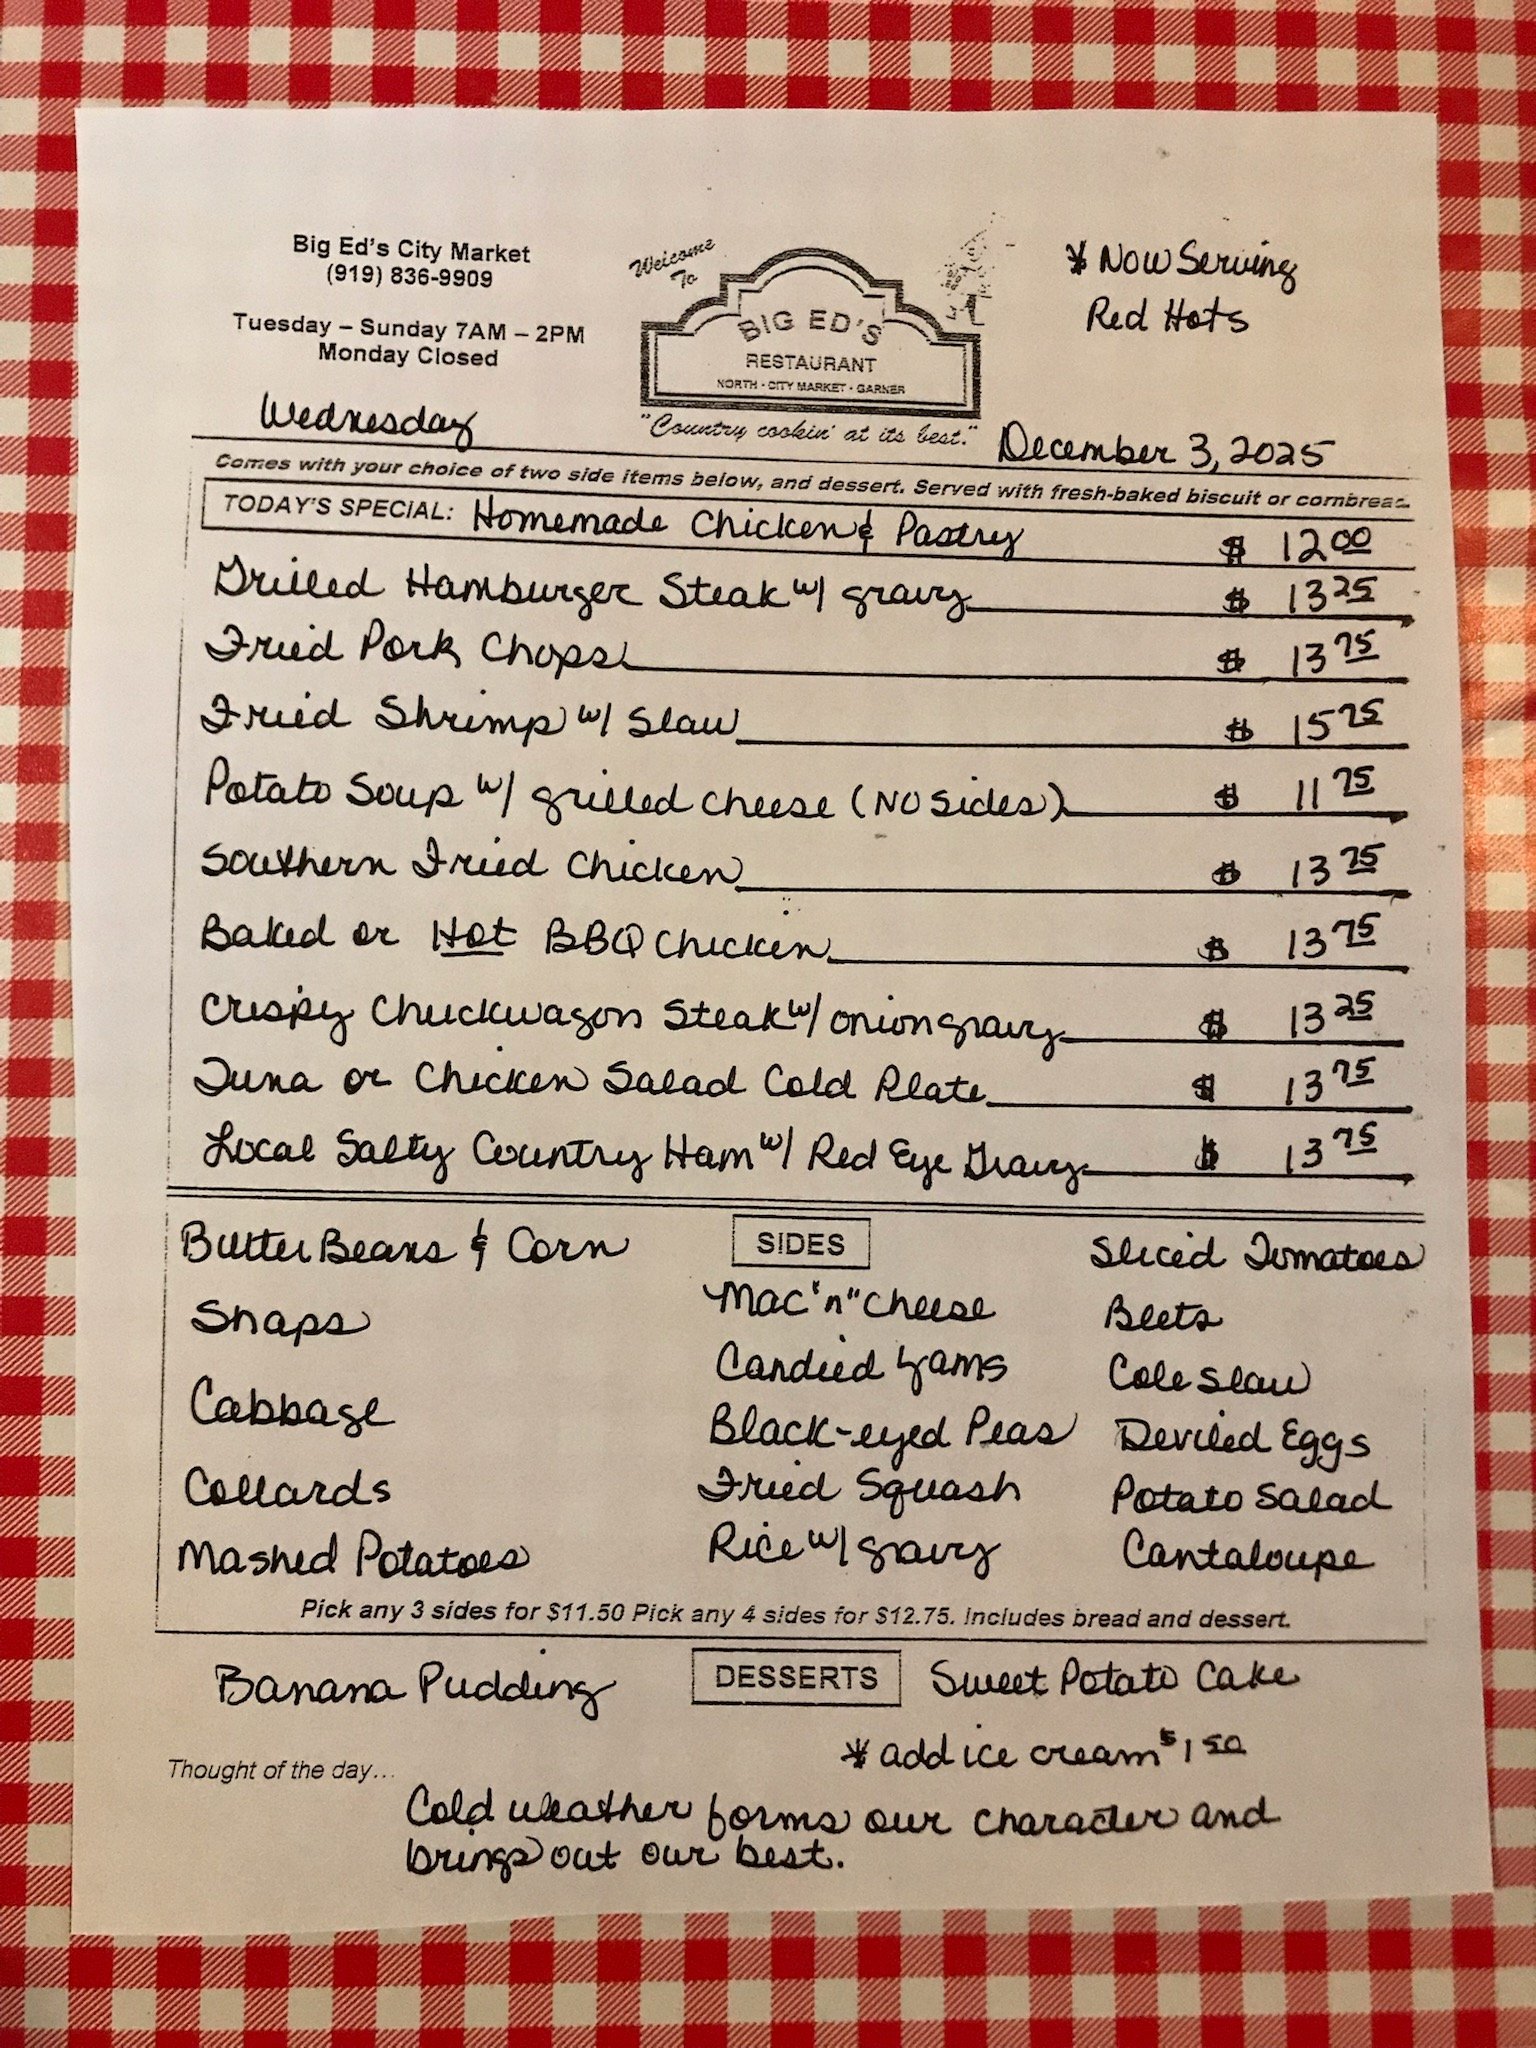 Big Ed's City Market
(919) 836-9909
Tuesday – Sunday 7AM – 2PM
Monday Closed
Welcome
To
BIG ED'S
RESTAURANT
NORTH - CITY MARKET - GARNER
"Country cookin' at its best."
* Now Serving
Red Hots
Wednesday
December 3, 2025
Comes with your choice of two side items below, and dessert. Served with fresh-baked biscuit or cornbread.
TODAY'S SPECIAL: Homemade Chicken & Pastry $ 12.00
Grilled Hamburger Steak w/ gravy $ 13.25
Fried Pork Chops $ 13.75
Fried Shrimp w/ Slaw $ 15.75
Potato Soup w/ grilled cheese (NO Sides) $ 11.75
Southern Fried Chicken $ 13.75
Baked or Hot BBQ Chicken $ 13.75
Crispy Chuckwagon Steak w/ onion gravy $ 13.25
Tuna or Chicken Salad Cold Plate $ 13.75
Local Salty Country Ham w/ Red Eye Gravy $ 13.75
SIDES
Butter Beans & Corn
Snaps
Cabbage
Collards
Mashed Potatoes
Mac "n" Cheese
Candied Yams
Black-eyed Peas
Fried Squash
Rice w/ gravy
Sliced Tomatoes
Beets
Cole Slaw
Deviled Eggs
Potato Salad
Cantaloupe
Pick any 3 sides for $11.50 Pick any 4 sides for $12.75. Includes bread and dessert.
DESSERTS
Banana Pudding
Sweet Potato Cake
* add ice cream $1.50
Thought of the day...
Cold weather forms our character and
brings out our best.